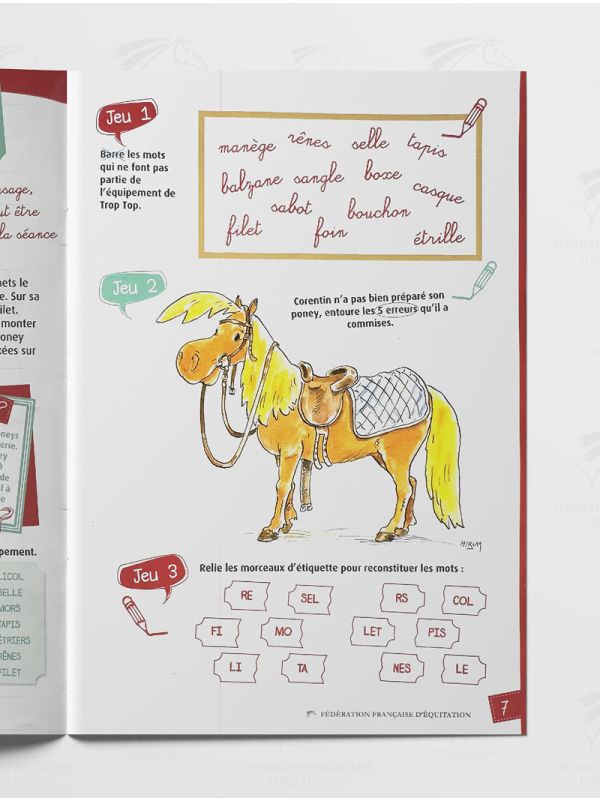 usage,
ut être
la séance
nets le
e. Sur sa
filet.
monter
poney
kées sur
neys
erie.
ey
à
de
el à
e
pement.
LICOL
SELLE
MORS
TAPIS
ÉTRIERS
RÊNES
FILET
Jeu 1
Barre les mots
qui ne font pas
partie de
l'équipement de
Trop Top.
manège rênes selle tapis
balzane sangle boxe casque
sabot bouchon
filet foin étrille
Jeu 2
Corentin n'a pas bien préparé son
poney, entoure les 5 erreurs qu'il a
commises.
HIKUM
Jeu 3
Relie les morceaux d'étiquette pour reconstituer les mots :
RE SEL RS COL
FI MO LET PIS
LI TA NES LE
FÉDÉRATION FRANÇAISE D'ÉQUITATION
7
FÉDÉRATION FRANÇAISE
D'ÉQUITATION